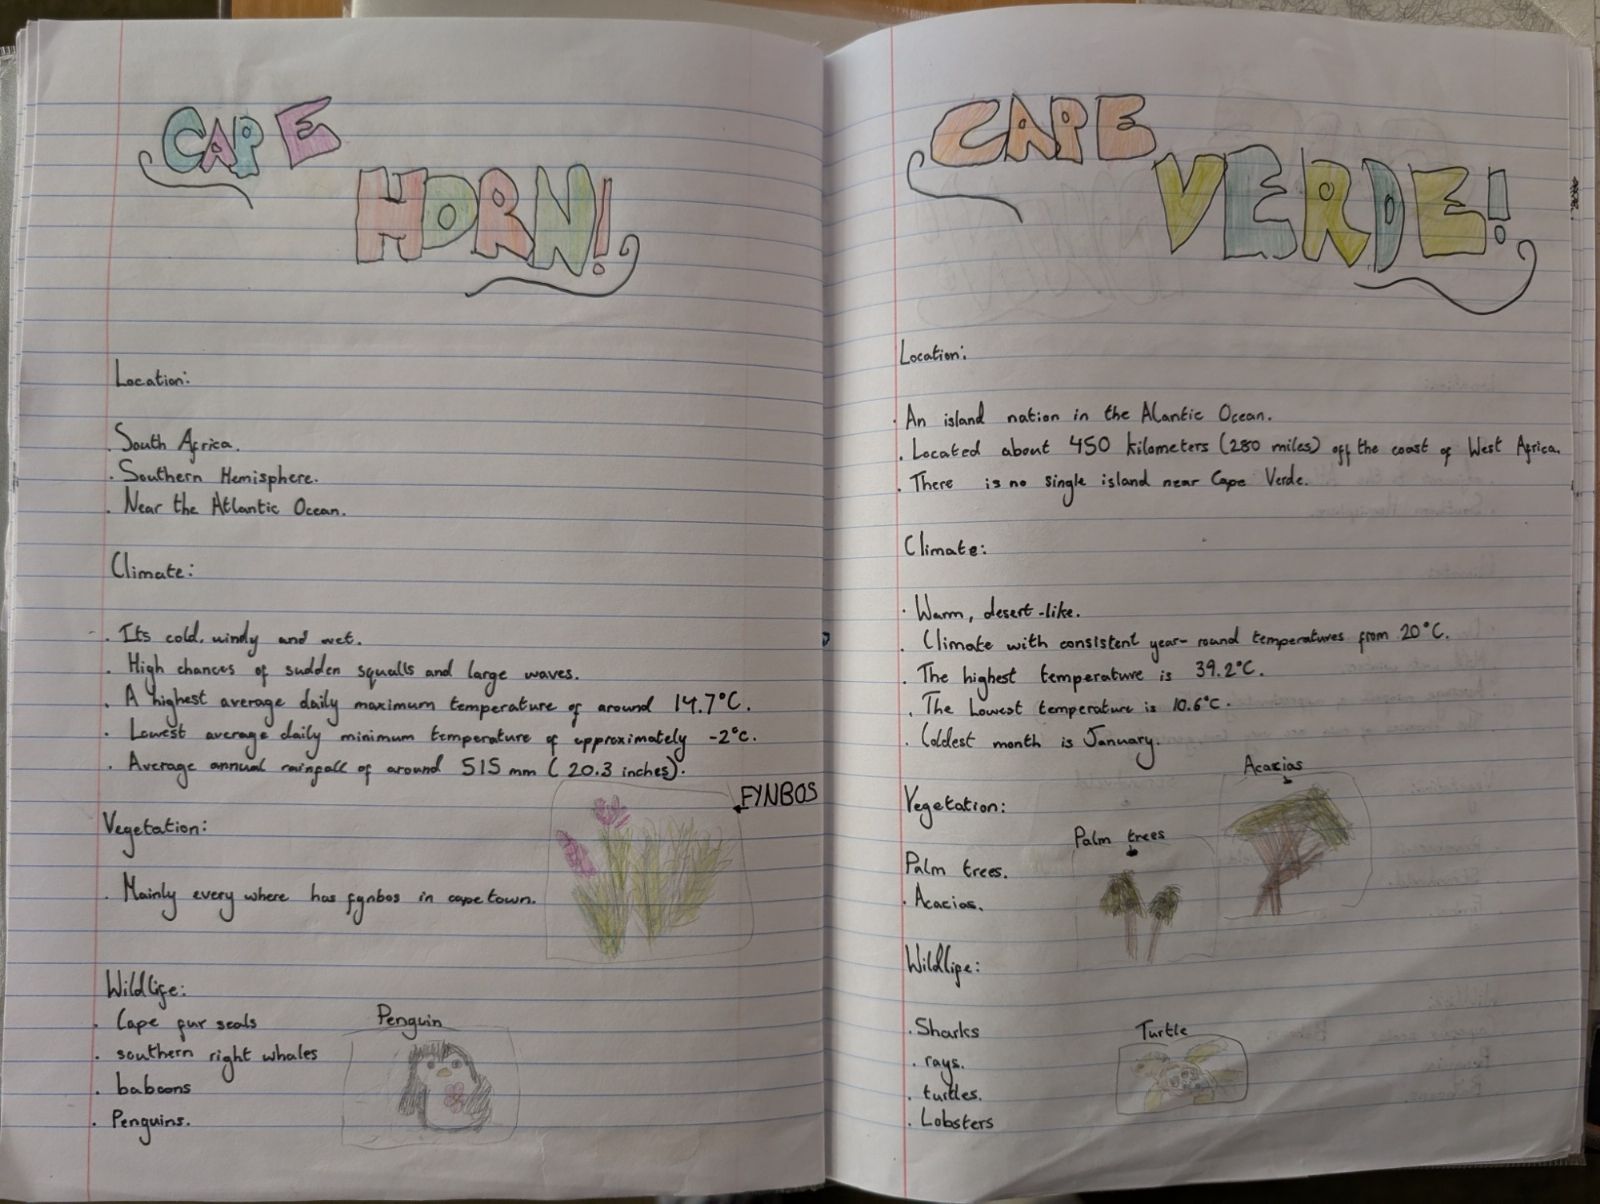 CAPE
HORN!
Location:
South Africa.
. Southern Hemisphere.
. Near the Atlantic Ocean.
Climate:
. Its cold, windy and wet.
. High chances of sudden squalls and large waves.
. A highest average daily maximum temperature of around 14.7°C.
. Lowest average daily minimum temperature of approximately -2°C.
. Average annual rainfall of around 515 mm (20.3 inches).
FYNBOS
Vegetation:
. Mainly every where has fynbos in cape town.
Wildlife:
. Cape fur seals
Penguin
. southern right whales
. baboons
. Penguins.
CAPE
VERDE!
Location:
. An island nation in the Alantic Ocean.
. Located about 450 kilometers (280 miles) off the coast of West Africa.
. There is no single island near Cape Verde.
Climate:
. Warm, desert-like.
. Climate with consistent year-round temperatures from 20°C.
. The highest temperature is 39.2°C.
. The Lowest temperature is 10.6°C.
. Coldest month is January.
Acacias
Vegetation:
Palm trees
Palm trees.
. Acacias.
Wildlife:
. Sharks
Turtle
. rays.
. turtles.
. Lobsters